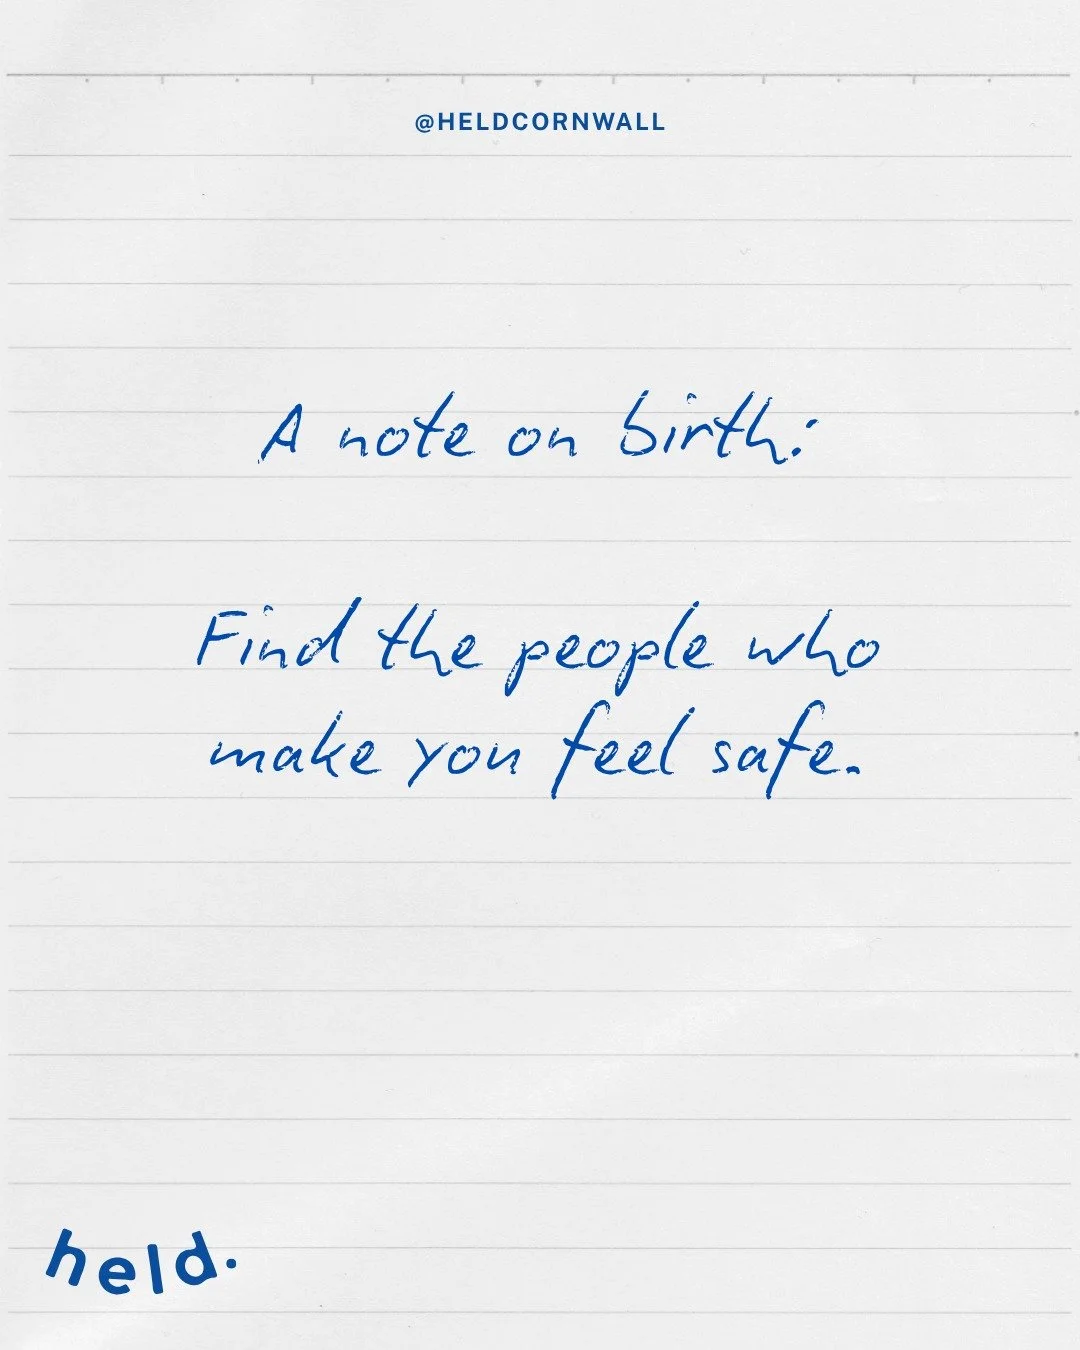 @HELDCORNWALL
A note on birth:
Find the people who
make you feel safe.
held.